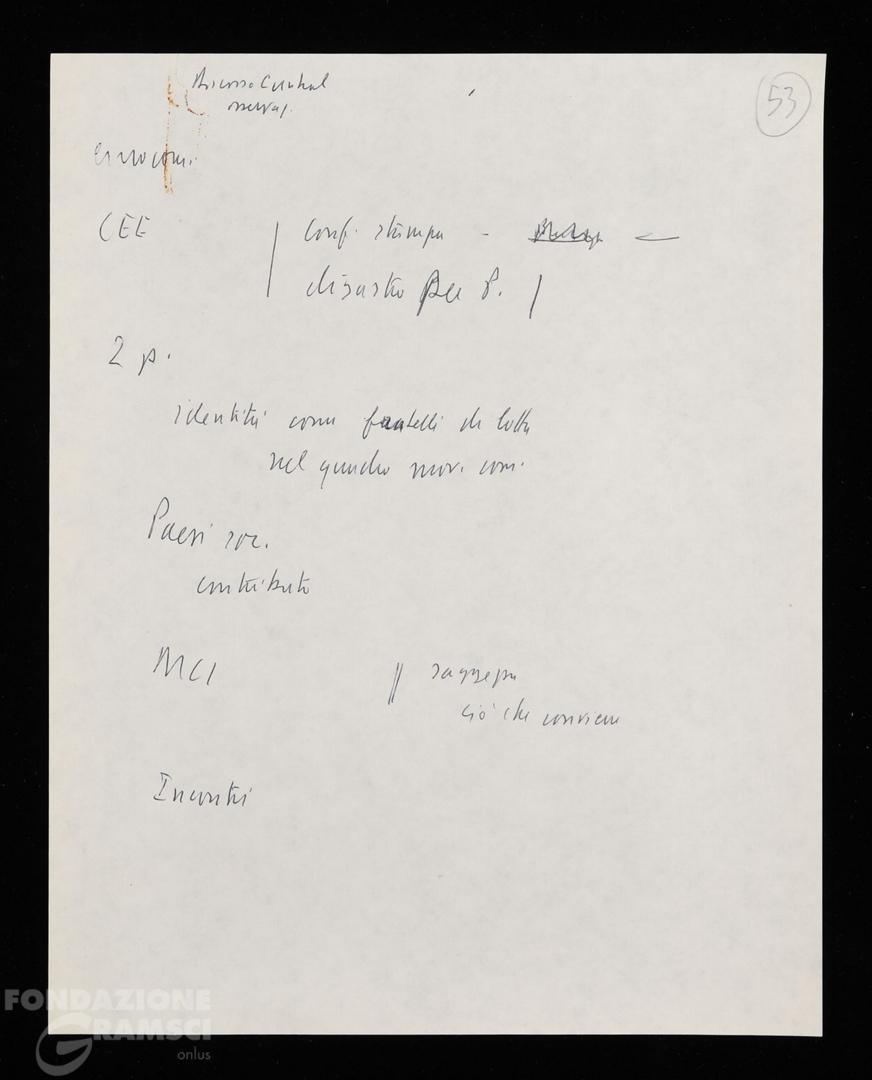 Discorso Cunhal
53
eurocom.
CEE
Conf. stampa -
disastro per P.
2 p.
identità come fratelli di lotta
nel quadro mov. com.
Paesi soc.
contributo
MCI
ciò che conviene
Incontri
FONDAZIONE
GRAMSCI
onlus